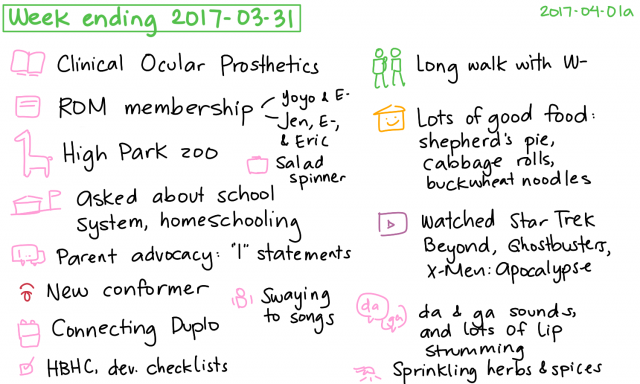 Week ending 2017-03-31
2017-04-01a
Clinical Ocular Prosthetics
ROM membership
Yoyo & E-
Jen, E-,
& Eric
High Park zoo
Salad
spinner
Asked about school
system, homeschooling
Parent advocacy: "I" statements
New conformer
Swaying
to songs
Connecting Duplo
HBHC, dev. checklists
Long walk with W-
Lots of good food:
shepherd's pie,
cabbage rolls,
buckwheat noodles
Watched Star Trek
Beyond, Ghostbusters,
X-Men: Apocalypse
da
ga
da & ga sounds,
and lots of lip
strumming
Sprinkling herbs & spices